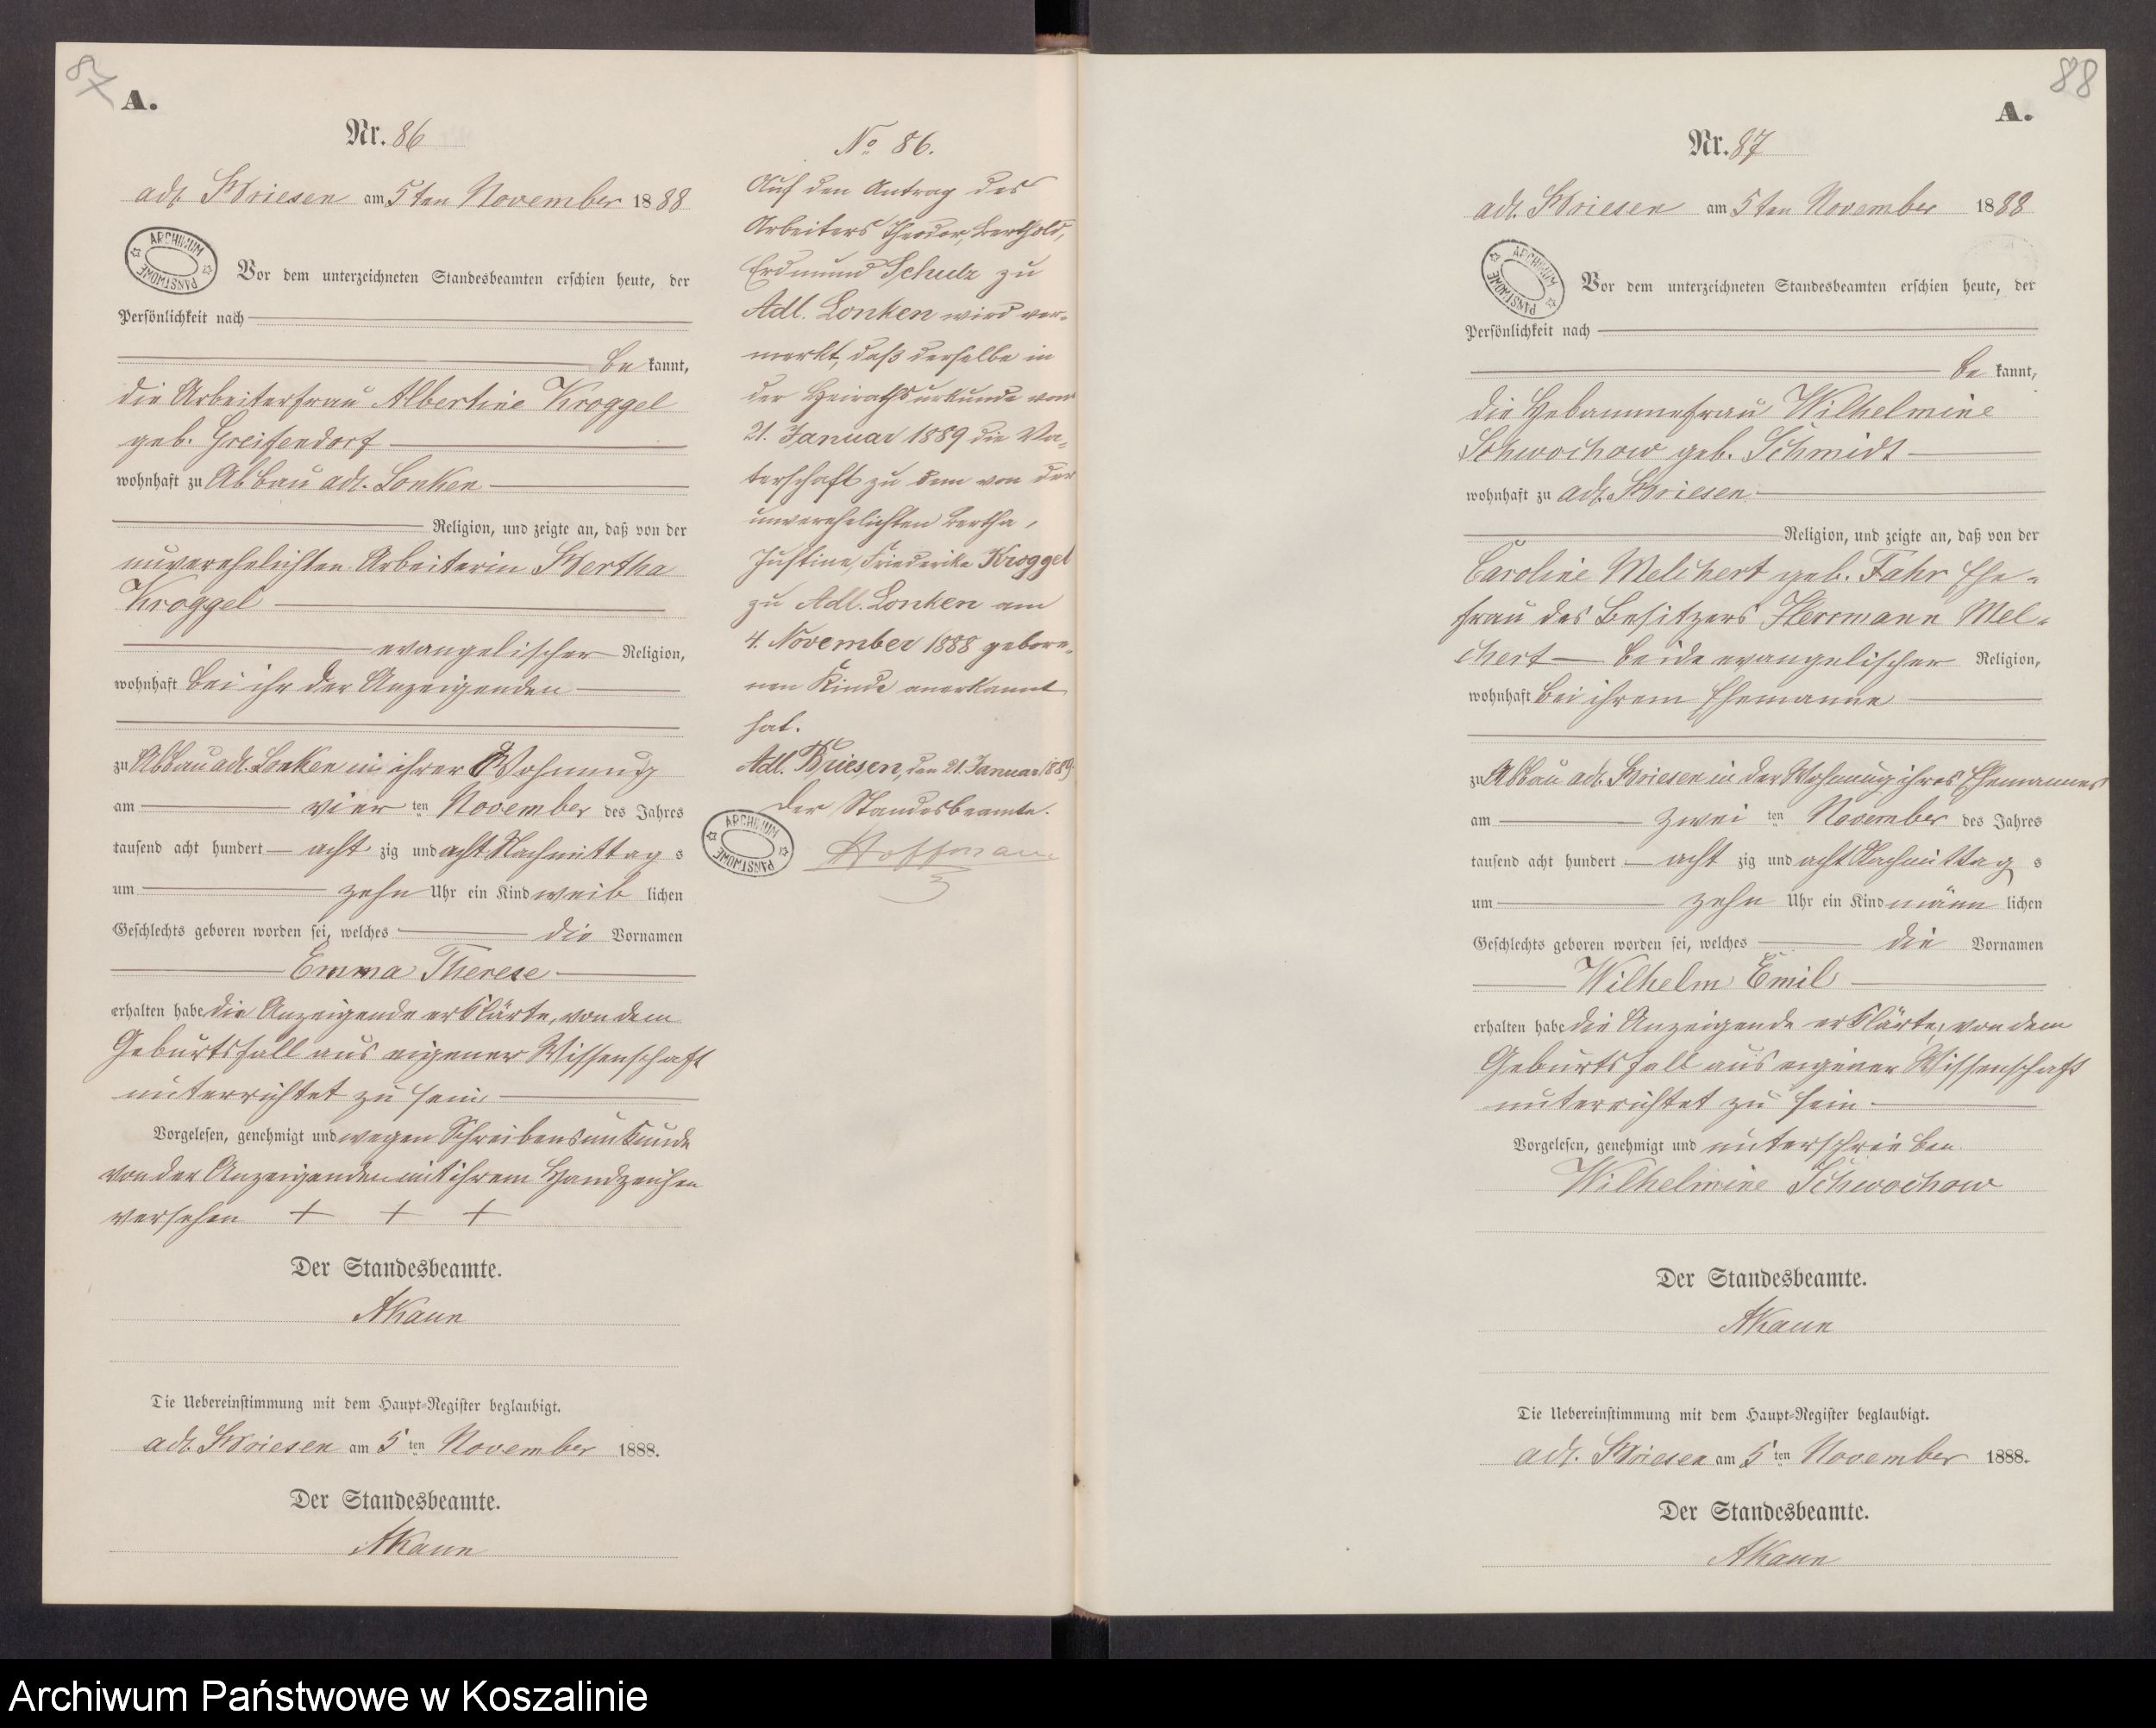 87
A.
Nr. 86
adl. Briesen am 5ten November 1888
ARCHIWUM PAŃSTWOWE
Vor dem unterzeichneten Standesbeamten erschien heute, der
Persönlichkeit nach
be kannt,
die Arbeiterfrau Albertine Kroggel
geb. Greifendorf
wohnhaft zu Abbau adl. Lonken
Religion, und zeigte an, daß von der
unverehelichten Arbeiterin Bertha
Kroggel
evangelischer Religion,
wohnhaft bei ihr der Anzeigenden
zu Abbau adl. Lonken in ihrer Wohnung
am vier ten November des Jahres
tausend acht hundert acht zig und acht Nachmittag s
um zehn Uhr ein Kind weib lichen
Geschlechts geboren worden sei, welches die Vornamen
Emma Therese
erhalten habe die Anzeigende erklärte, von dem
Geburtsfall aus eigener Wissenschaft
unterrichtet zu sein
Vorgelesen, genehmigt und wegen Schreibensunkunde
von der Anzeigenden mit ihrem Handzeichen
versehen + + +
Der Standesbeamte.
AKaun
Die Uebereinstimmung mit dem Haupt-Register beglaubigt.
adl. Briesen am 5 ten November 1888.
Der Standesbeamte.
AKaun
No 86.
Auf den Antrag des
Arbeiters Theodor, Berthold,
Erdmund Schulz zu
Adl. Lonken wird ver-
merkt, daß derselbe in
der Heirathsurkunde vom
21. Januar 1889 die Va-
terschaft zu dem von der
unverehelichten Bertha,
Justine, Friederike Kroggel
zu Adl. Lonken am
4. November 1888 gebore-
nen Kinde anerkannt
hat.
Adl. Briesen, den 21. Januar 1889
Der Standesbeamte.
ARCHIWUM PAŃSTWOWE
Hoffmann
88
A.
Nr. 87
adl. Briesen am 5ten November 1888
ARCHIWUM PAŃSTWOWE
Vor dem unterzeichneten Standesbeamten erschien heute, der
Persönlichkeit nach
be kannt,
die Hebammefrau Wilhelmine
Schwochow geb. Schmidt
wohnhaft zu adl. Briesen
Religion, und zeigte an, daß von der
Caroline Melchert geb. Fahr Ehe-
frau des Besitzers Herrmann Mel-
chert beide evangelischer Religion,
wohnhaft bei ihrem Ehemanne
zu Abbau adl. Briesen in der Wohnung ihres Ehemannes
am zwei ten November des Jahres
tausend acht hundert acht zig und acht Nachmittag s
um zehn Uhr ein Kind männ lichen
Geschlechts geboren worden sei, welches die Vornamen
Wilhelm Emil
erhalten habe die Anzeigende erklärte, von dem
Geburtsfall aus eigener Wissenschaft
unterrichtet zu sein
Vorgelesen, genehmigt und unterschrieben
Wilhelmine Schwochow
Der Standesbeamte.
AKaun
Die Uebereinstimmung mit dem Haupt-Register beglaubigt.
adl. Briesen am 5 ten November 1888.
Der Standesbeamte.
AKaun
Archiwum Państwowe w Koszalinie